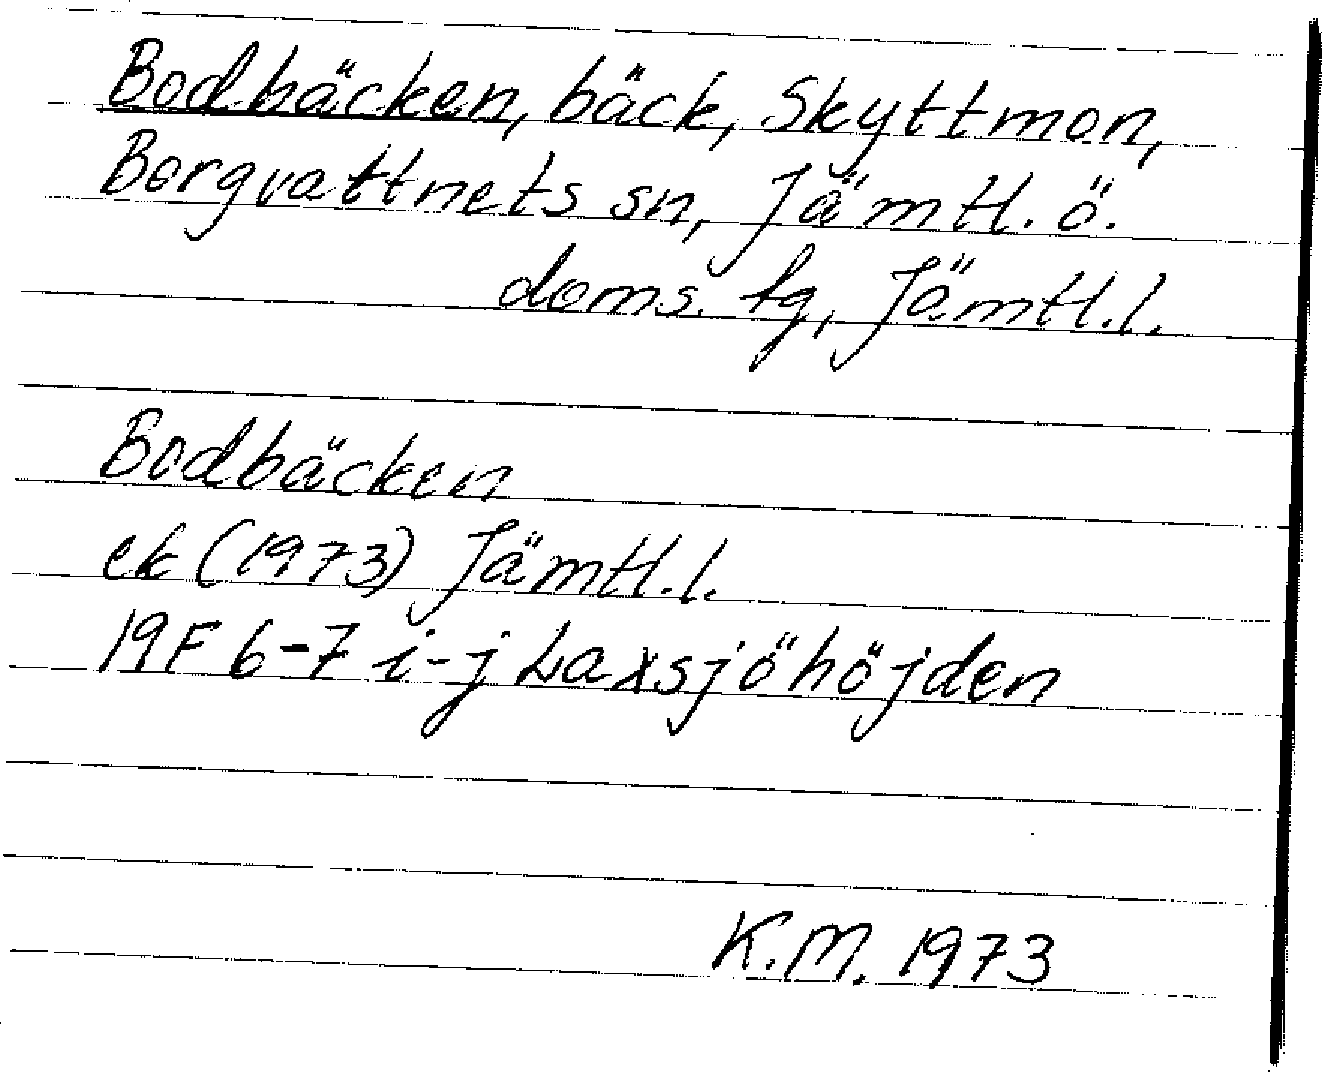 Bodbäcken, bäck, Skyttmon,
Borgvattnets sn, Jämtl. ö.
doms. fg, Jämtl. l.
Bodbäcken
ek (1973) Jämtl. l.
19F 6-7 i-j Laxsjöhöjden
K.M. 1973